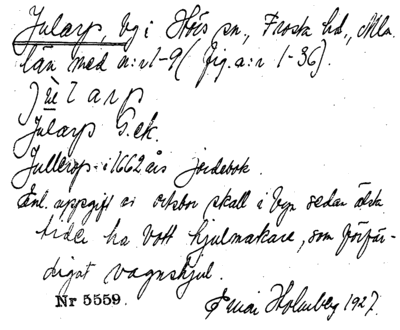 Jularp, by i Hörs sn., Frosta hd., Mlm.
län med n:r 1-9 (fig. a:r 1-36).
Jularp
Jularp G.ek.
Jullerop i 1662 års jordebok.
Enl. uppgift av ortsbor skall i byn sedan älsta
tider ha bott hjulmakare, som förfär-
digat vagnshjul.
Nr 5559. Holmberg 1927.